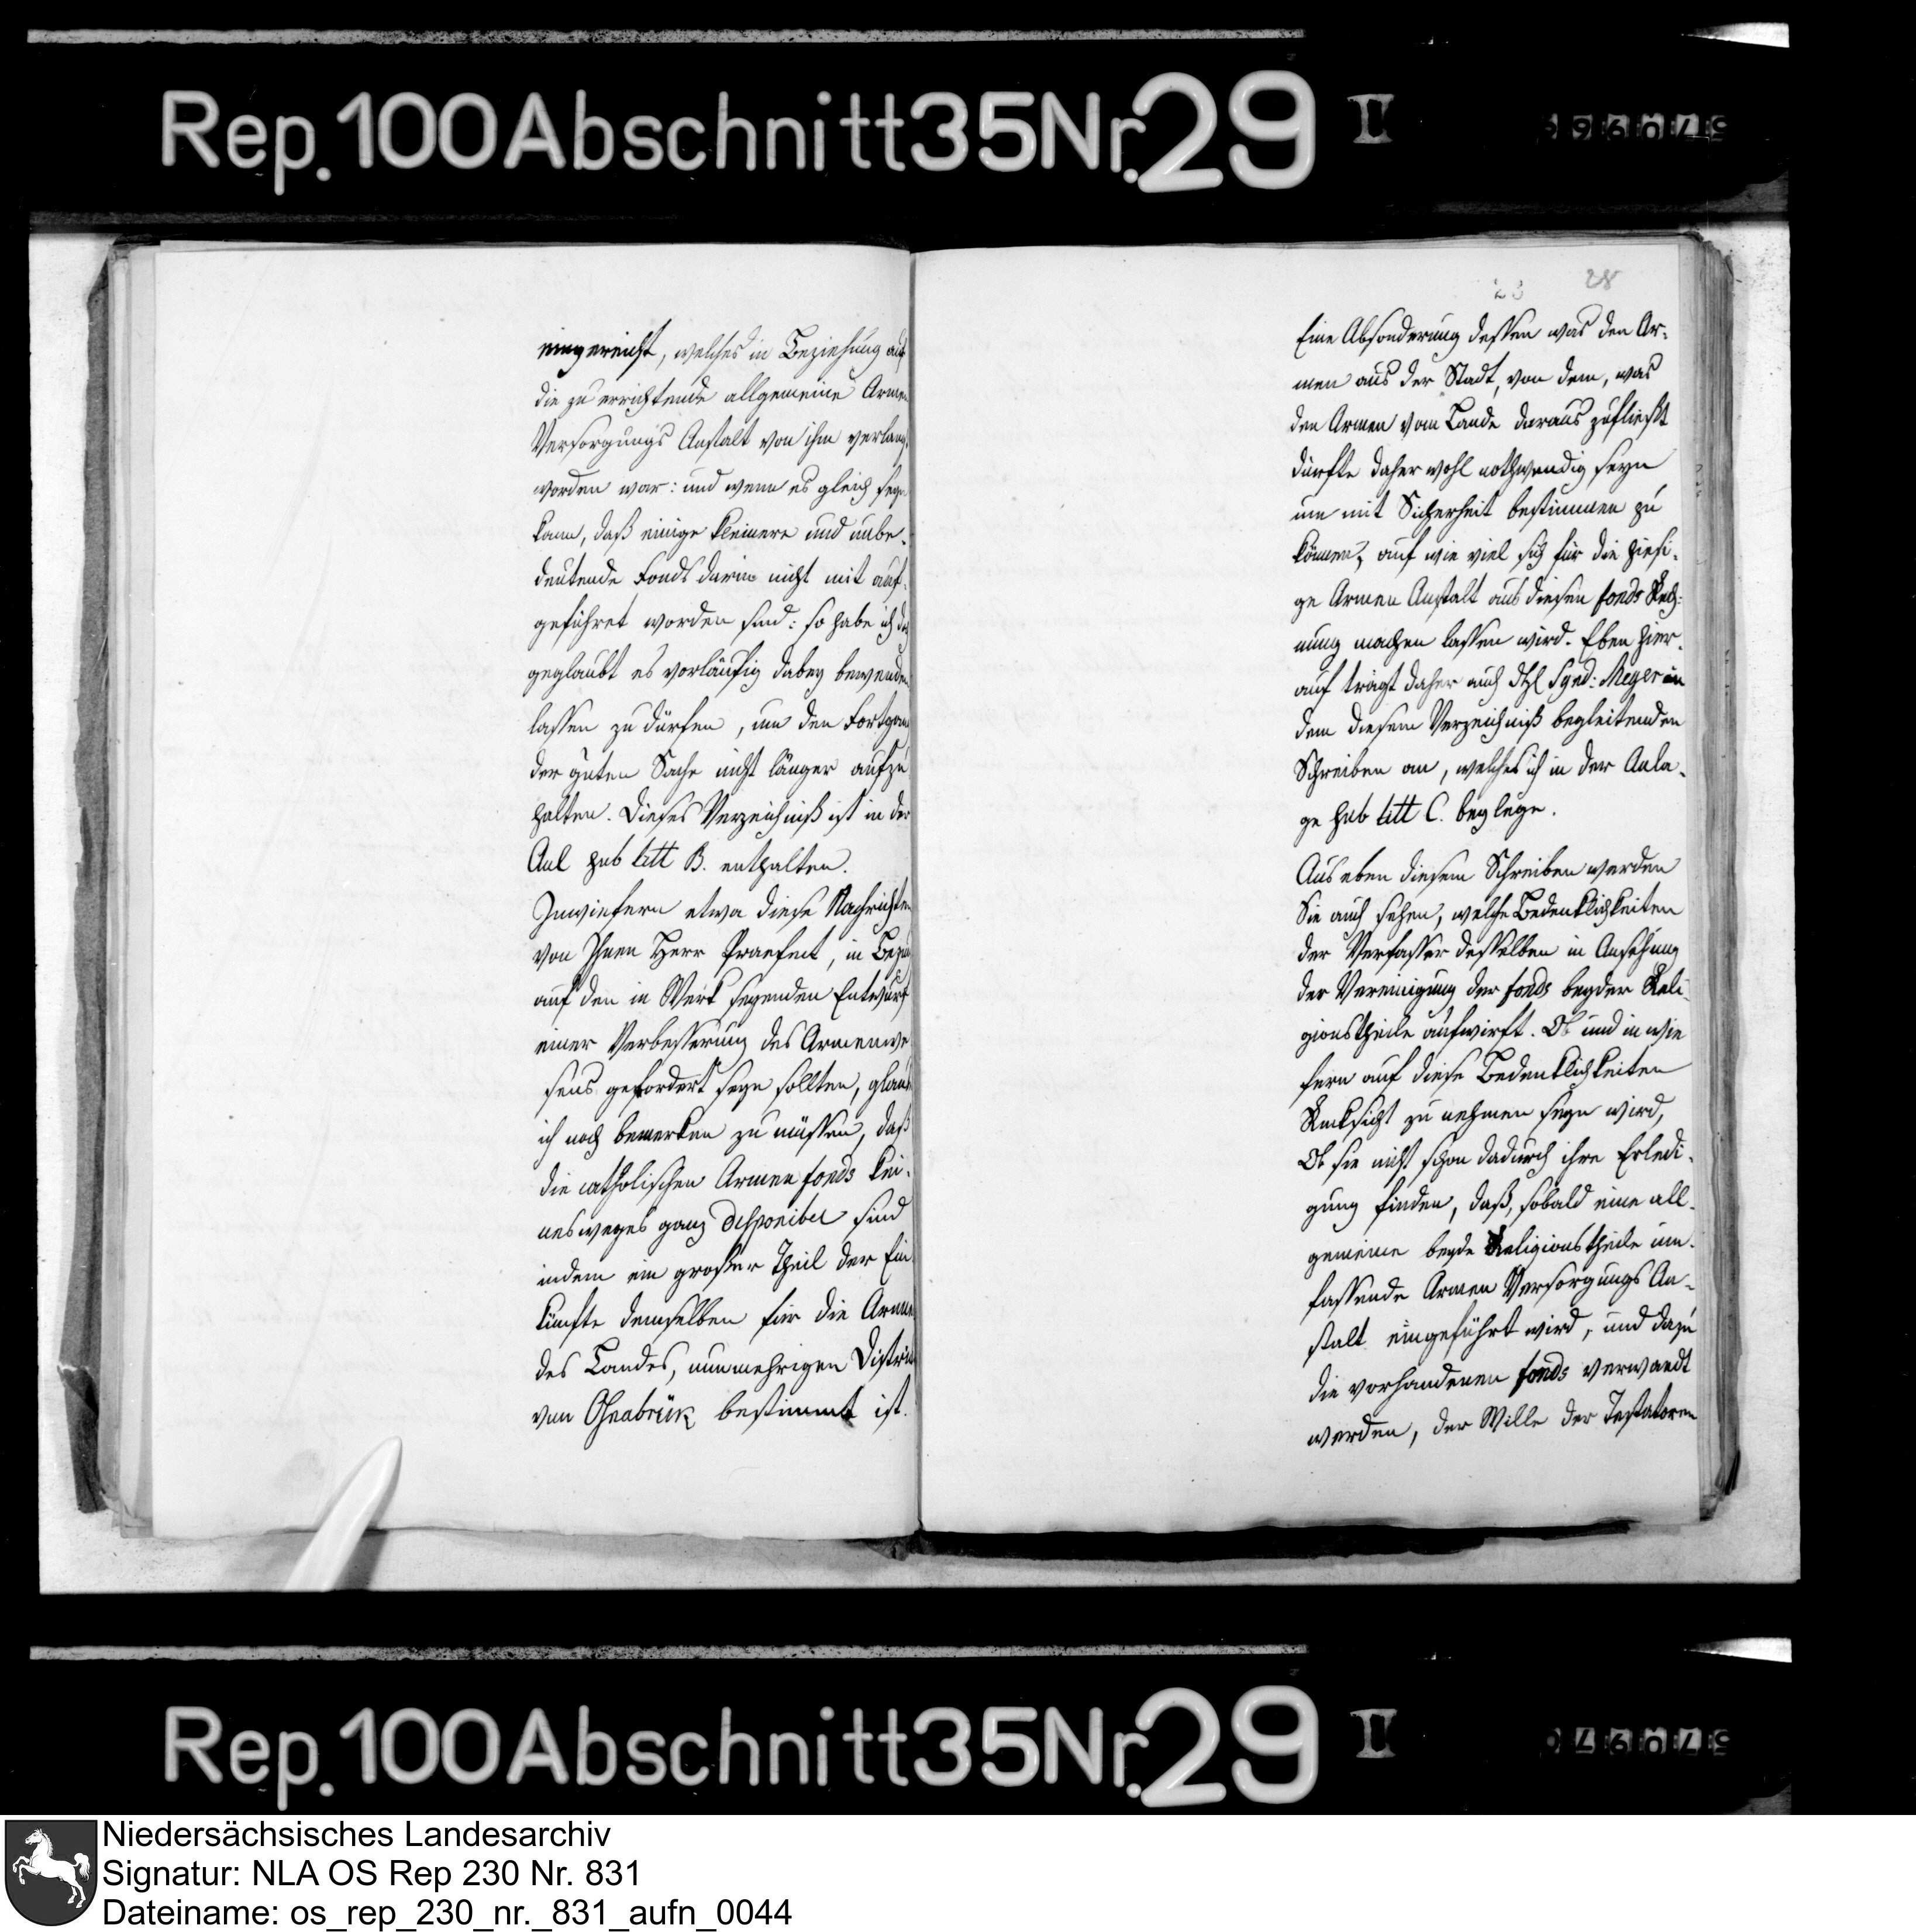 Rep. 100 Abschnitt 35 Nr. 29 I
eingereicht, welches in Beziehung auf
die zu errichtende allgemeine Armen
Versorgungs Anstalt von ihm verlangt
worden war: und wenn es gleich seyn
kann, daß einige kleinere und unbe-
deutende Fonds darin nicht mit auf-
geführet worden sind: so habe ich doch
geglaubt es vorläufig dabey bewenden
lassen zu dürfen, um den Fortgang
der guten Sache nicht länger aufzu
halten. Dieses Verzeichniß ist in der
Anl sub litt B. enthalten.
Inwiefern etwa diese Nachrichten
von Ihnen Herr Praefect, in Bezug
auf den in Werk seyenden Entwurf
einer Verbesserung des Armenwe
sens gefordert seyn sollten, glaube
ich noch bemerken zu müssen, daß
die catholischen Armen fonds kei-
nesweges ganz disponibel sind
indem ein großer Theil der Ein
künfte demselben für die Armen
des Landes, nunmehrigen District
von Osnabrük bestimmt ist.
28
Eine Absonderung dessen was den Ar-
men aus der Stadt, von dem, was
den Armen vom Lande daraus zufließt
dürfte daher wohl nothwendig seyn
um mit Sicherheit bestimmen zu
können, auf wie viel sich für die hiesi-
ge Armen Anstalt aus diesen fonds Rech-
nung machen lassen wird. Eben hier-
auf trägt daher auch Synd: Meyer in
dem diesem Verzeichniß begleitenden
Schreiben an, welches ich in der Anla-
ge sub litt C. beylege.
Aus eben diesem Schreiben werden
Sie auch sehen, welche Bedenklichkeiten
der Verfasser desselben in Ansehung
der Vereinigung der fonds beyder Reli-
gionstheile aufwirft. Ob und in wie
fern auf diese Bedenklichkeiten
Rücksicht zu nehmen seyn wird,
Ob sie nicht schon dadurch ihre Erledi-
gung finden, daß, sobald eine all-
gemeine beyde Religionstheile um-
fassende Armen Versorgungs An-
stalt eingeführt wird, und dazu
die vorhandenen fonds verwandt
werden, der Wille der Testatoren
Rep. 100 Abschnitt 35 Nr. 29 I
Niedersächsisches Landesarchiv
Signatur: NLA OS Rep 230 Nr. 831
Dateiname: os_rep_230_nr._831_aufn_0044